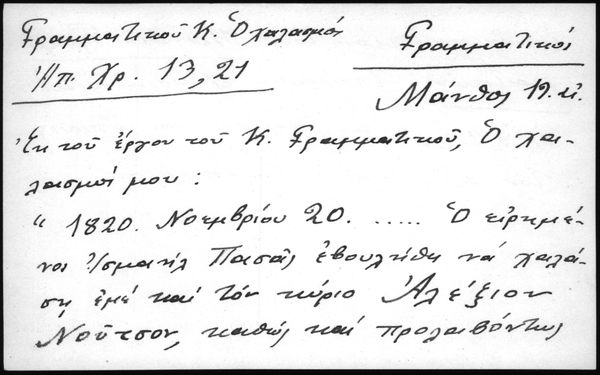 Γραμματικοῦ Κ. Ὁ χαλασμός
Ἠπ. Χρ. 13, 21
Γραμματικός
Μάνθος
Ἐκ τοῦ ἔργου τοῦ Κ. Γραμματικοῦ, Ὁ χα-
λασμός μου :
“ 1820. Νοεμβρίου 20. ..... Ὁ εἰρημέ-
νος Ἰσμαήλ Πασᾶς ἐβουλήθη νά χαλά-
σῃ ἐμέ καί τόν κύριο Ἀλέξιον
Νοῦτσον, καθώς καί προλαβόντως